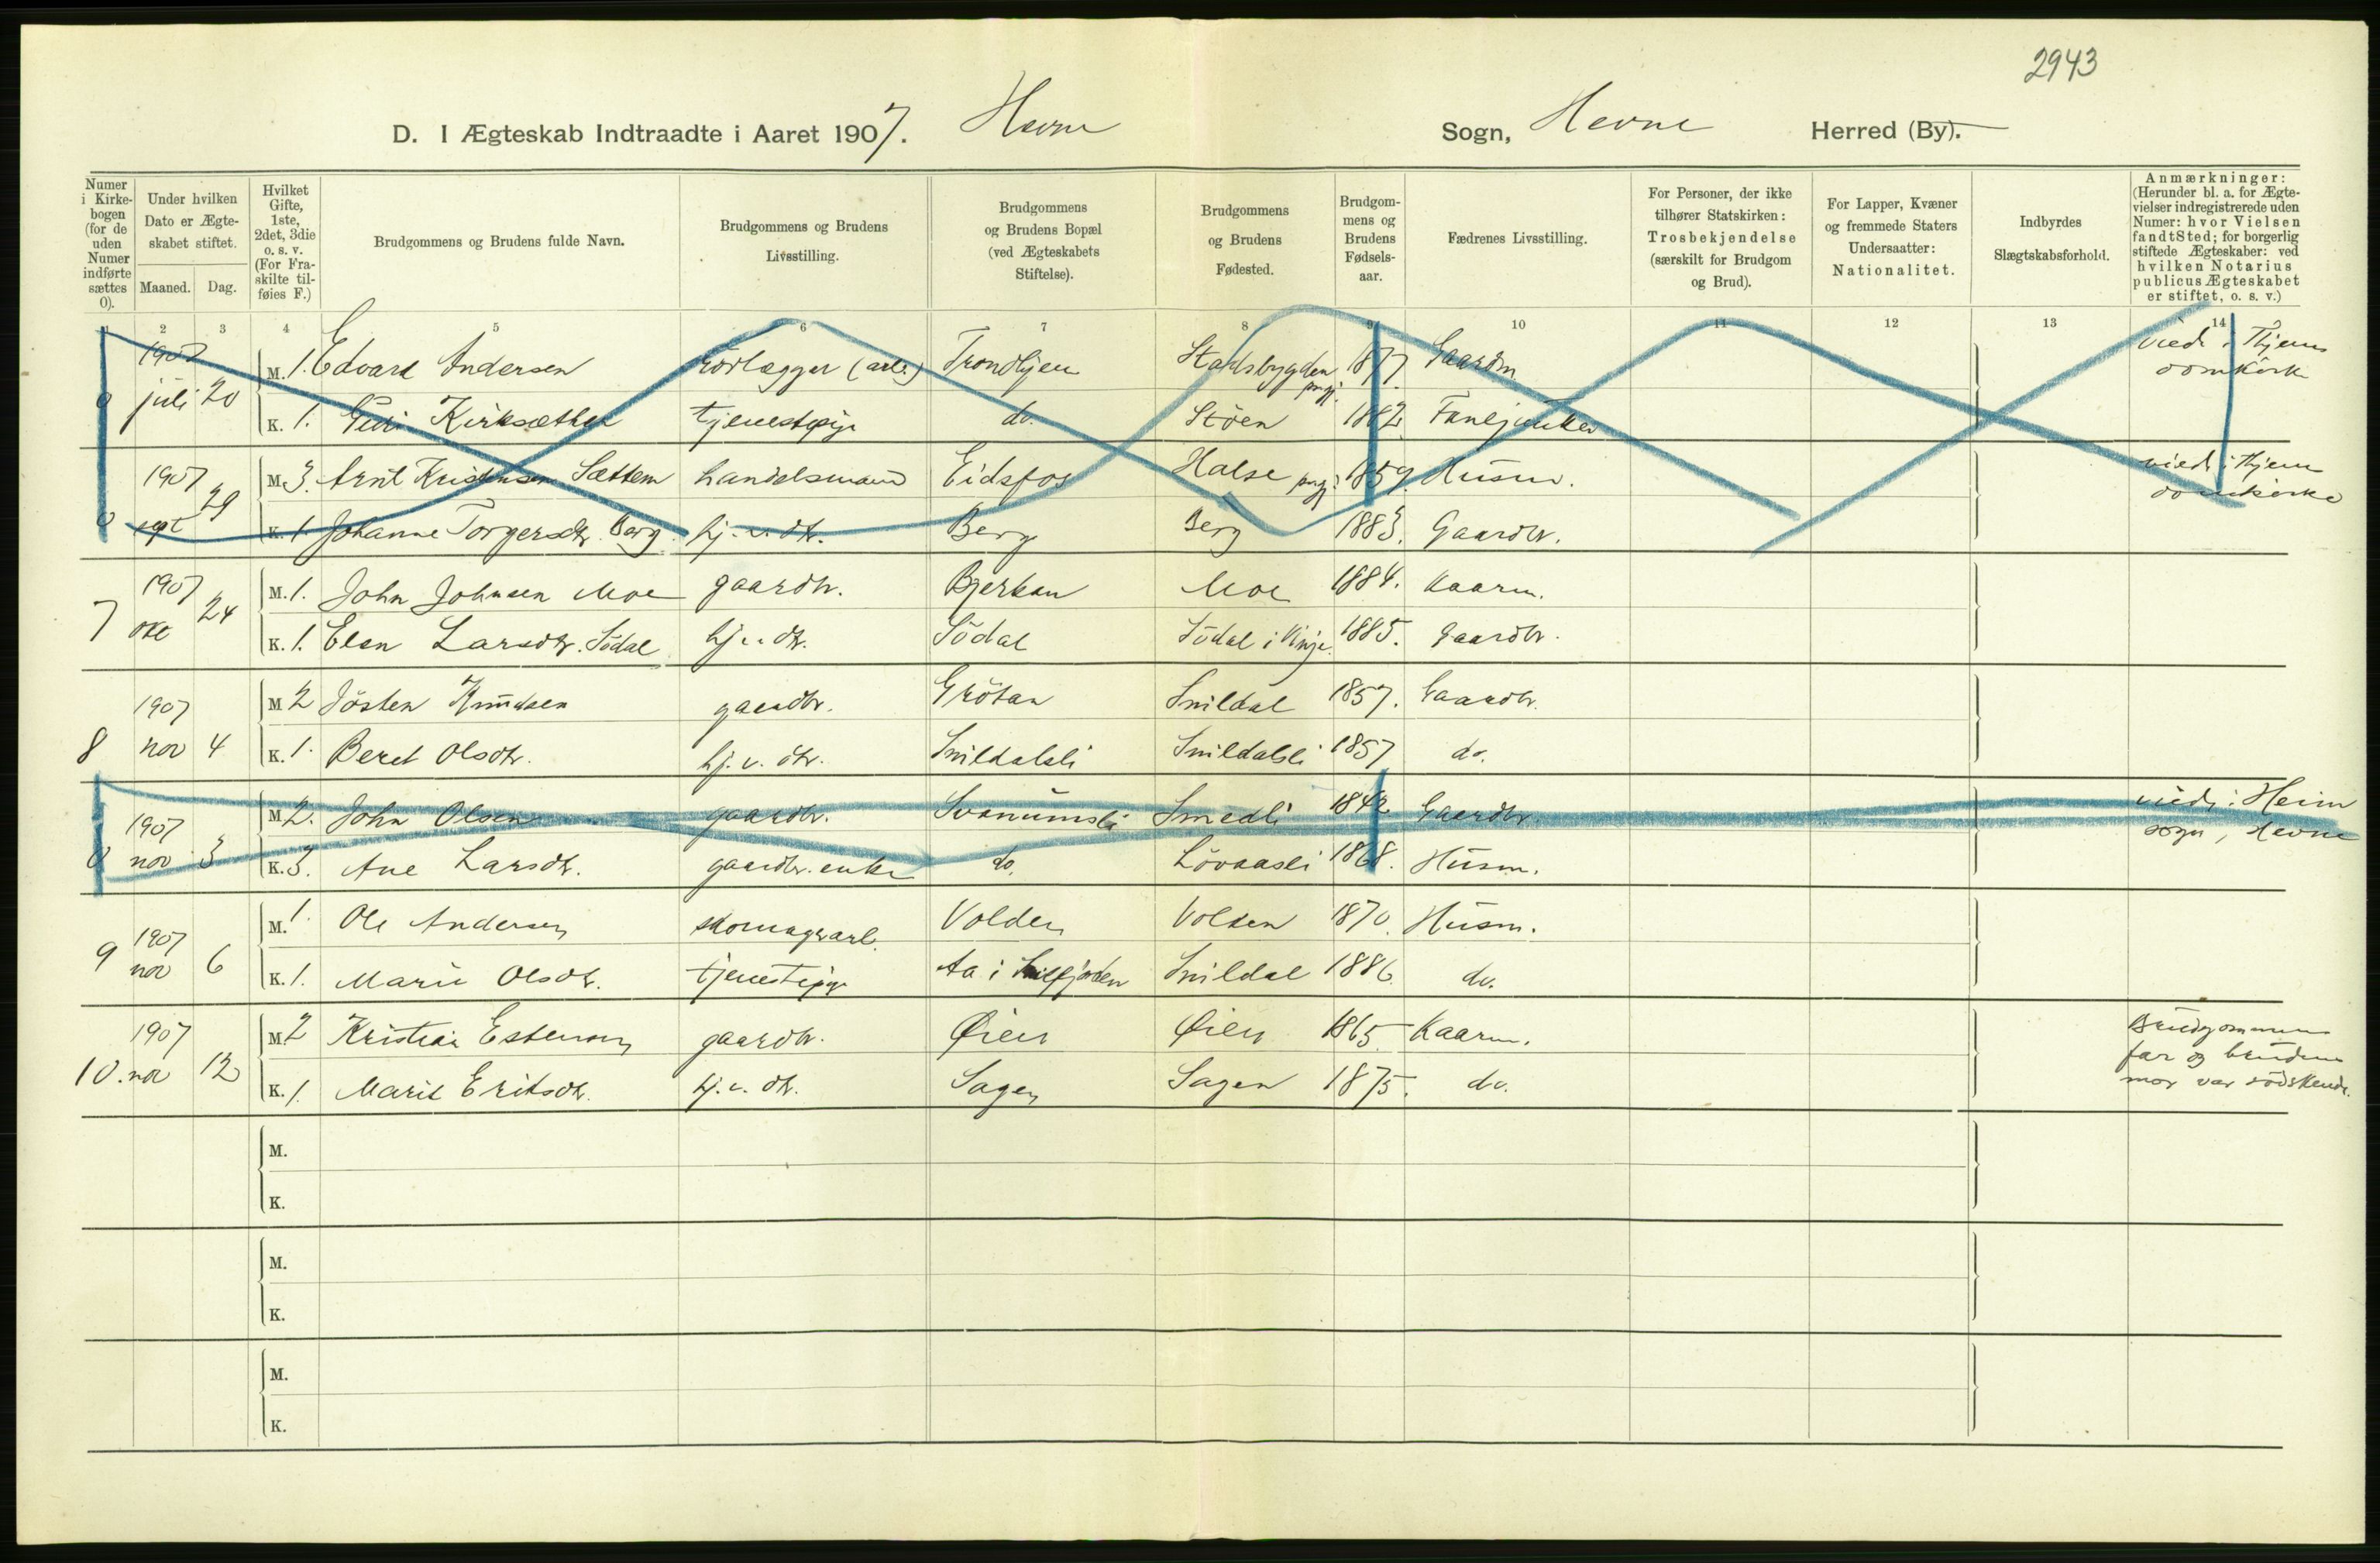 2943
D. I Ægteskab Indtraadte i Aaret 1907. Hevne Sogn, Hevne Herred (By).
Numer i Kirkebogen (for de uden Numer indførte sættes 0).
Under hvilken Dato er Ægteskabet stiftet.
Maaned. Dag.
Hvilket Gifte, 1ste, 2det, 3die o. s. v. (For Fraskilte tilføies F.)
Brudgommens og Brudens fulde Navn.
Brudgommens og Brudens Livsstilling.
Brudgommens og Brudens Bopæl (ved Ægteskabets Stiftelse).
Brudgommens og Brudens Fødested.
Brudgommens og Brudens Fødselsaar.
Fædrenes Livsstilling.
For Personer, der ikke tilhører Statskirken: Trosbekjendelse (særskilt for Brudgom og Brud).
For Lapper, Kvæner og fremmede Staters Undersaatter: Nationalitet.
Indbyrdes Slægtskabsforhold.
Anmærkninger: (Herunder bl. a. for Ægtevielser indregistrerede uden Numer: hvor Vielsen fandt Sted; for borgerlig stiftede Ægteskaber: ved hvilken Notarius publicus Ægteskabet er stiftet, o. s. v.)
1 2 3 4 5 6 7 8 9 10 11 12 13 14
0 1907 juli 20 M. 1. Edvard Andersen rørlægger (arb.) Trondhjem Stadsbygden prgj. 1877. Gaardm viede i Thjems domkirk
K. 1. Kirksæther tjenestepige do. Støen 1882. Fanejunker
0 1907 sept 29 M. 3. Arnt Kristensen Sættem handelsmand Eidsfos Halse prgj. 1859. Husm. viede i Thjems domkirke
K. 1. Johanne Torgersdtr. Berg hj. v. dtr. Berg Berg 1883. Gaardbr.
7 1907 okt 24 M. 1. John Johnsen Moe gaardbr. Bjerkan Moe 1884. Kaarm.
K. 1. Elen Larsdtr. Södal hj. v. dtr. Södal Södal i Vinje 1885. Gaardbr.
8 1907 nov 4 M. 2 Jösten Knudsen gaardbr. Grötan Snildal 1857. Gaardbr.
K. 1. Beret Olsdtr. hj. v. dtr. Snildalsli Snildalsli 1857 do.
0 1907 nov 3 M. 2. John Olsen gaardbr. Svanumsli Smedli 1842 Gaardbr. viede i Heim sogn, Hevne
K. 3. Ane Larsdtr. gaardbr. enke do. Lövaasli 1868. Husm.
9 1907 nov 6 M. 1. Ole Andersen skomagerarb. Volden Volden 1870. Husm.
K. 1. Marie Olsdtr. tjenestepige Aa i Snilfjorden Snildal 1886. do.
10. 1907 nov 12 M. 2 Kristian Estensen gaardbr. Øien Øien 1865 Kaarm. Brudgommens far og brudens mor var södskende.
K. 1. Marit Eriksdtr. hj. v. dtr. Sagen Sagen 1875. do.
M.
K.
M.
K.
M.
K.